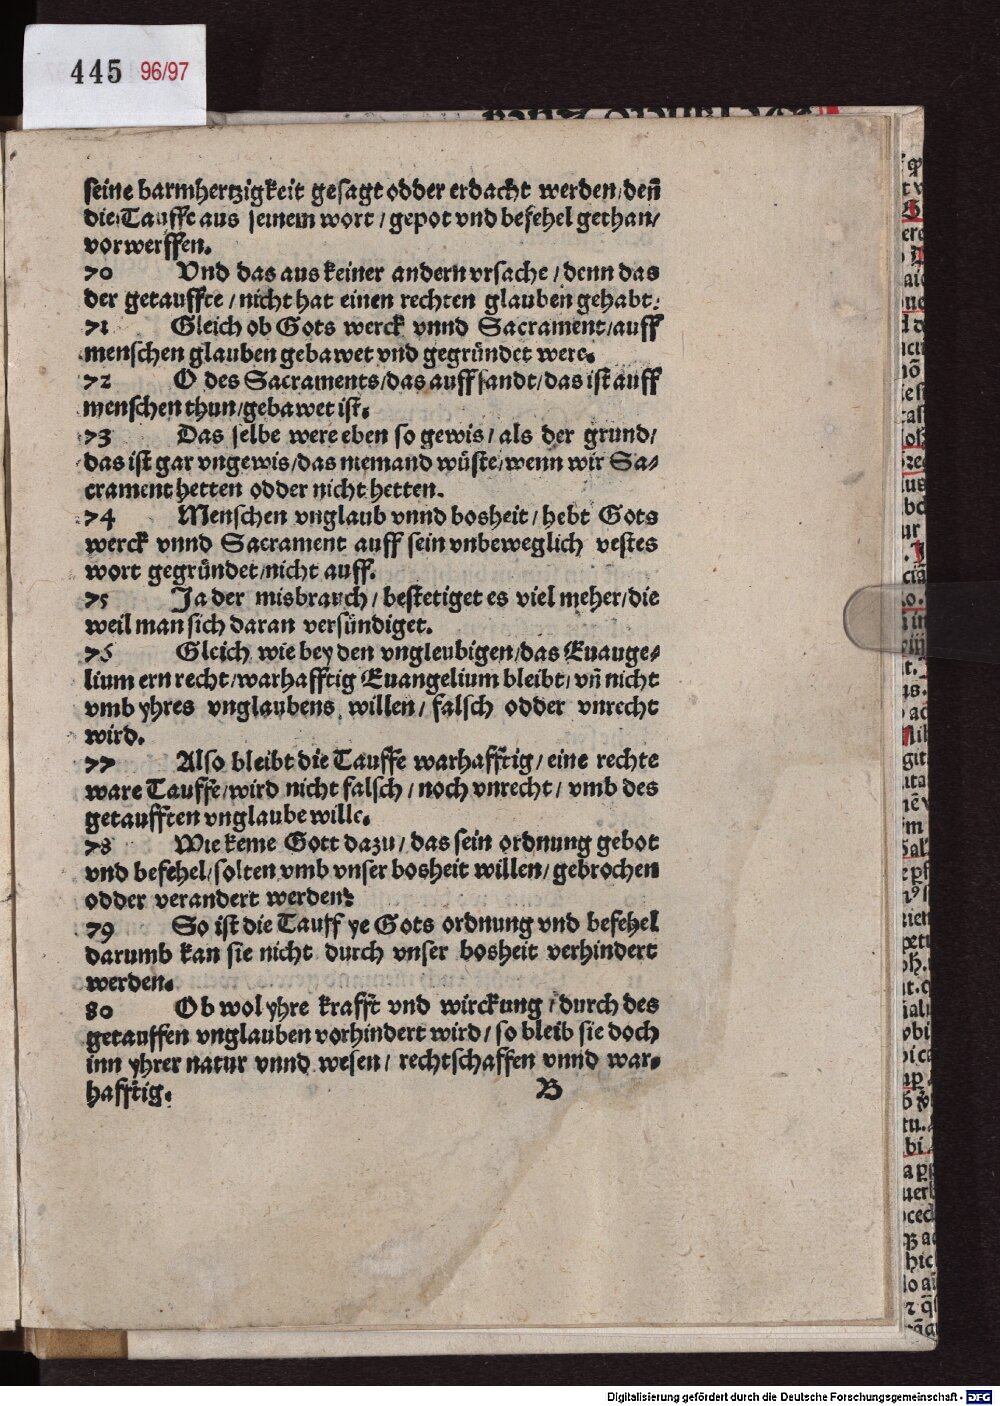 445 96/97
seine barmhertzigkeit gesagt odder erdacht werden/den̄
die Tauffe aus seinem wort / gepot vnd befehel gethan/
vorwerffen.
70 Vnd das aus keiner andern vrsache / denn das
der getauffte / nicht hat einen rechten glauben gehabt.
71 Gleich ob Gots werck vnnd Sacrament/auff
menschen glauben gebawet vnd gegründet were.
72 O des Sacraments/das auff sandt/das ist auff
menschen thun/gebawet ist.
73 Das selbe were eben so gewis / als der grund/
das ist gar vngewis/das niemand wüste/wenn wir Sa⸗
crament hetten odder nicht hetten.
74 Menschen vnglaub vnnd bosheit / hebt Gots
werck vnnd Sacrament auff sein vnbeweglich vestes
wort gegründet/nicht auff.
75 Ja der misbrauch / bestetiget es viel meher/die
weil man sich daran versündiget.
75 Gleich wie bey den vngleubigen/das Euauge⸗
lium ern recht/warhafftig Euangelium bleibt/vn̄ nicht
vmb yhres vnglaubens willen / falsch odder vnrecht
wird.
77 Also bleibt die Tauffe warhafftig / eine rechte
ware Tauffe/wird nicht falsch / noch vnrecht / vmb des
getaufften vnglaube wille.
78 Wie keme Gott dazu / das sein ordnung gebot
vnd befehel/solten vmb vnser bosheit willen/ gebrochen
odder verandert werden?
79 So ist die Tauff ye Gots ordnung vnd befehel
darumb kan sie nicht durch vnser bosheit verhindert
werden.
80 Ob wol yhre krafft vnd wirckung / durch des
getauffen vnglauben vorhindert wird / so bleib sie doch
inn yhrer natur vnnd wesen / rechtschaffen vnnd war⸗
hafftig.
B
Digitalisierung gefördert durch die Deutsche Forschungsgemeinschaft - DFG